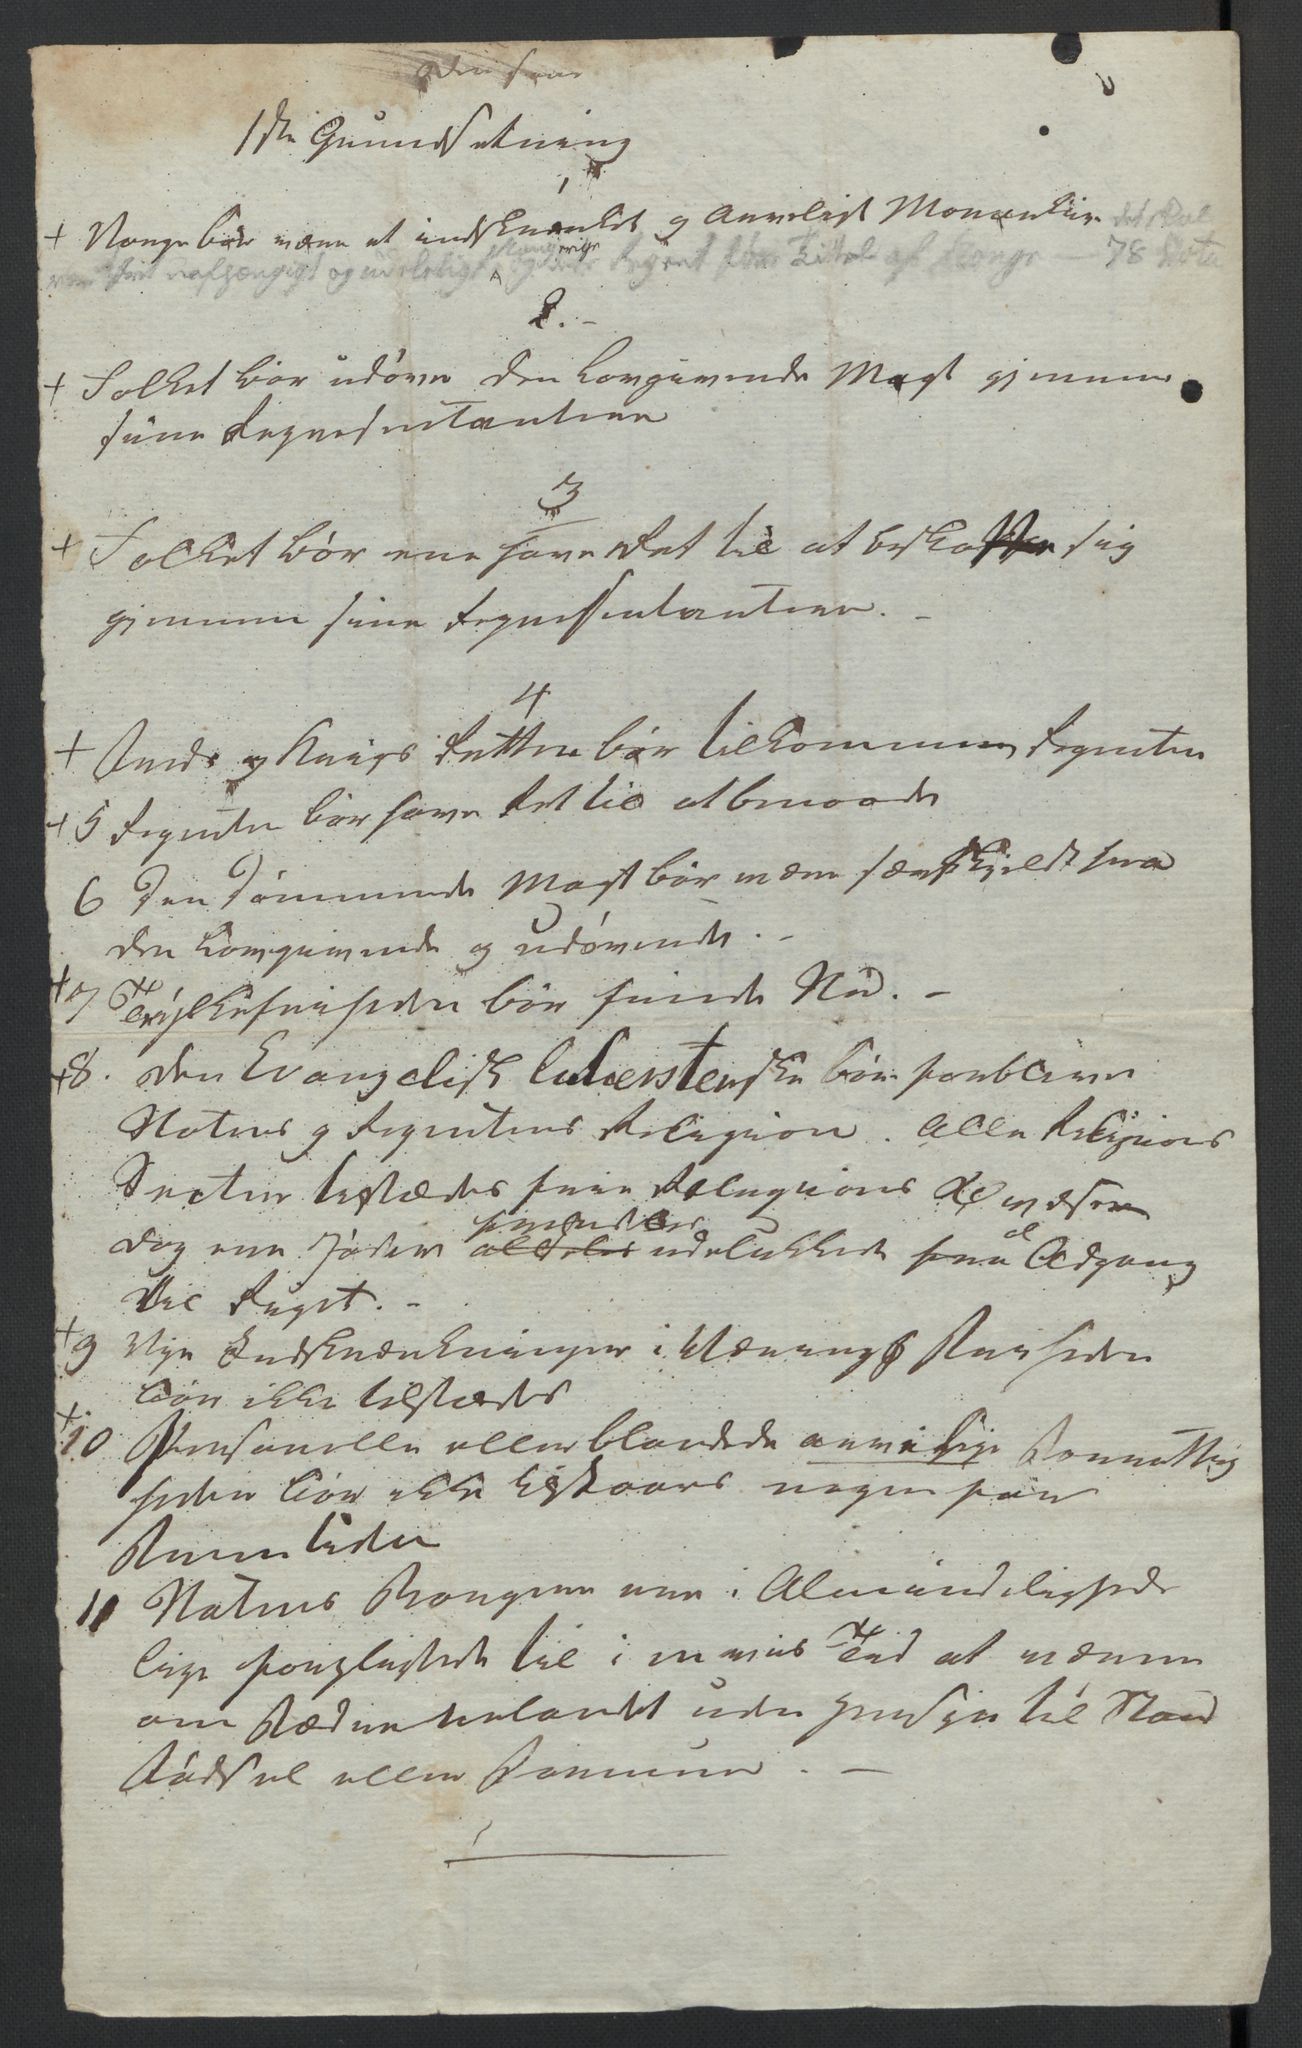 1ste Grundsætning
1
+ Norge bør være et indskrænket og Arveligt Monarkie det skal
være frit uafhængigt og udeleligt Kongerige og dets Regent føre Tittel af Konge — 78 Vota
2. -
+ Folket bør udøve den Lovgivende Magt gjennem
sine Repræsentantere
3
+ Folket bør ene have Ret til at beskatte sig
gjennem sine Repræssentantere. -
4
+ Freds og Krigs Retten bør tilkomme Regenten
+ 5 Regenten bør have Ret til at benaade
6 Den Dømmende Magt bør være særskildt fra
den Lovgivende og udøvende. -
+ 7 Trykkefriheden bør finde Sted. -
+ 8. Den Evangelisk Luterstenske bør forblive
Statens og Regentens Religion. Alle Religions
Secter tilstædes frie Religions Øvelser
dog ere Jøder aldeles fremdeles udelukkede fra al Adgang
til Riget. -
+ 9 Nye Indskrænkninger i Nærings Friheden
bør ikke tilstædes
+ 10 Personelle eller blandede arvelige Forrettig
heder bør ikke tilstaaes nogen for
Fremtiden
11 Statens Borgere ere i Almindelighed
lige forpligtede til i en vis Tid at værne
om Fædrenelandet uden Hensyn til Stand
Fødsel eller Formue. -